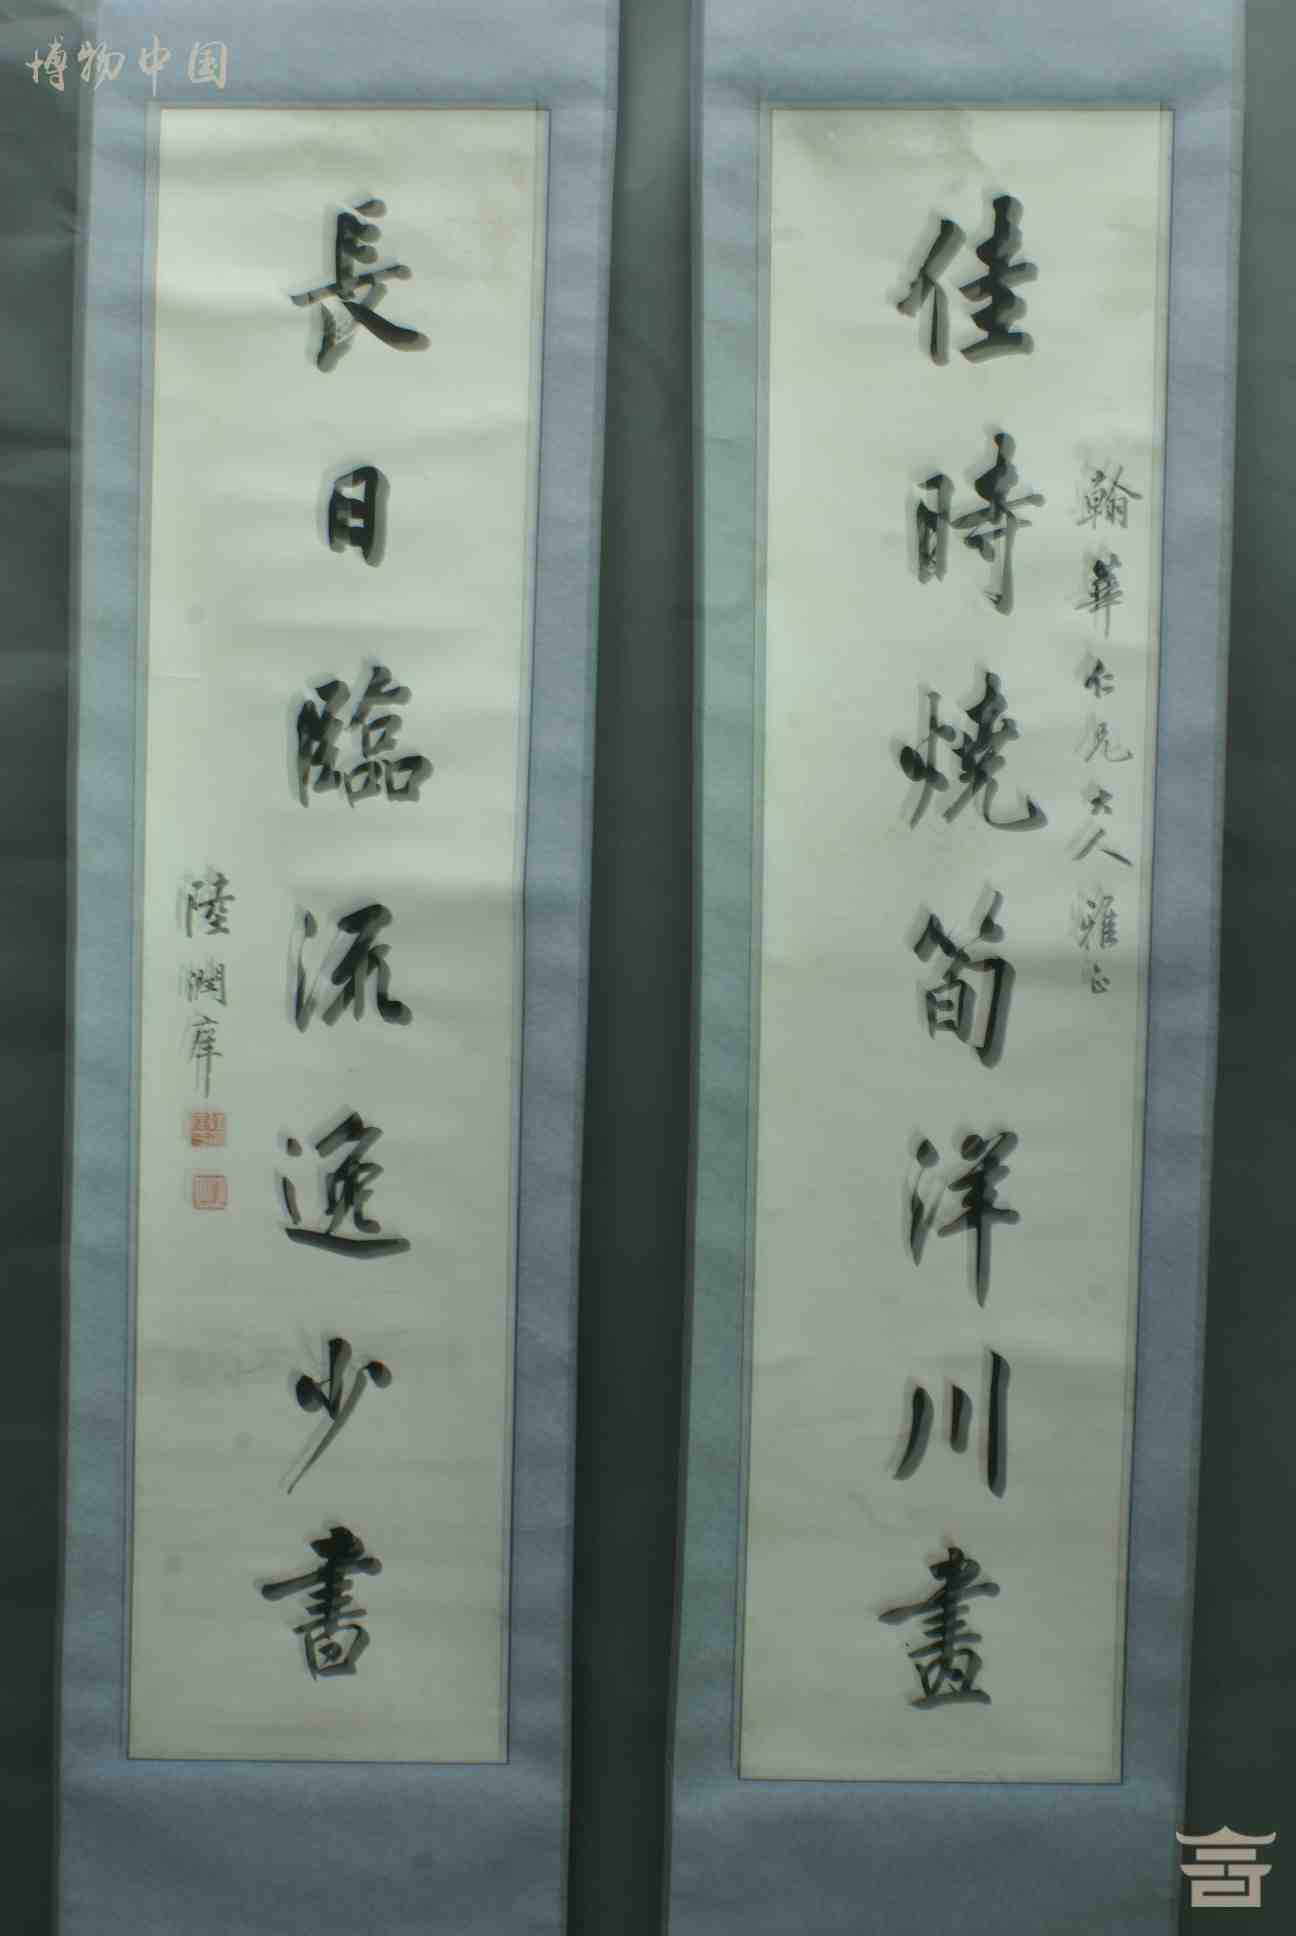 博物中国
翰華仁兄大人雅正
佳時燒筍洋川畫
長日臨流逸少書
陸潤庠